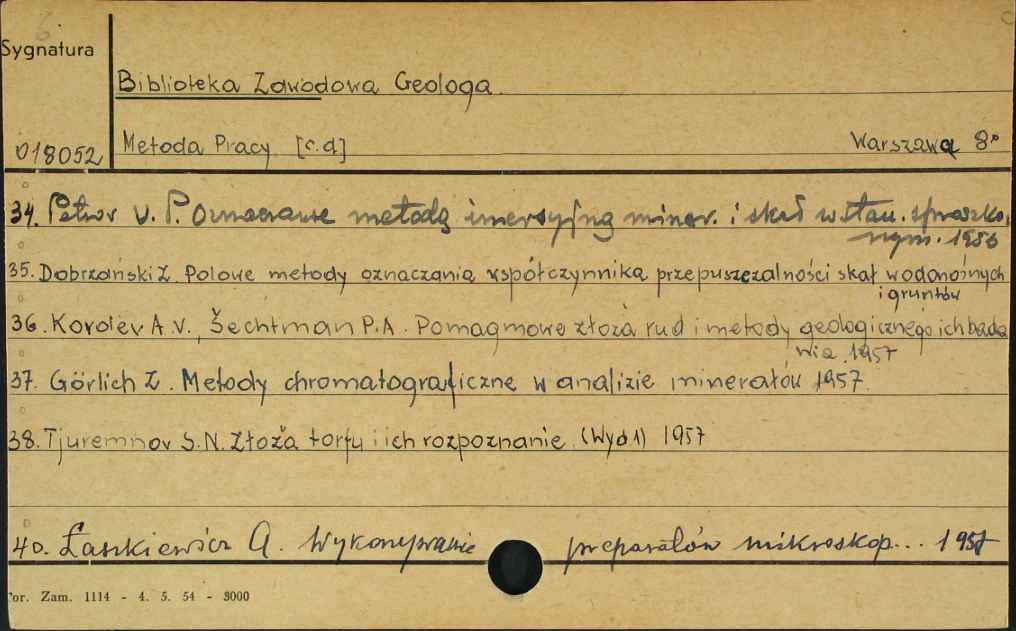 Sygnatura
Biblioteka Zawodowa Geologa.
018052
Metoda Pracy [c.d]
Warszawa 8°
34. Petrov V. P. Oznaczanie metodą imersyjną miner. i skał w stan. sproszko
nym. 1956
35. Dobrzański Z. Polowe metody oznaczania współczynnika przepuszczalności skał wodonośnych
i gruntów
36. Korolev A.V., Šechtman P.A. Pomagmowe złoża rud i metody geologicznego ich bada
nia. 1957
37. Görlich Z. Metody chromatograficzne w analizie minerałów 1957.
38. Tjuremnov S.N. Złoża torfu i ich rozpoznanie. (Wyd 1) 1957
40. Łaszkiewicz A. Wykonywanie preparatów mikroskop... 1957
For. Zam. 1114 - 4. 5. 54 - 3000